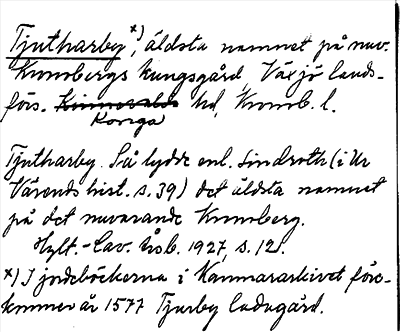 Tjutharby x), äldsta namnet på nuv.
Kronobergs kungsgård, Växjö lands-
förs. Kinnevalds hd, Kronob. l.
Konga
Tjutharby. Så lydde enl. Lindroth (i Ur
Värends hist. s. 39) det äldsta namnet
på det nuvarande Kronoberg.
Hylt.-Cav. årsb. 1927, s. 121.
x) I jordeböckerna i Kammararkivet före-
kommer år 1577 Tjurby ladugård.